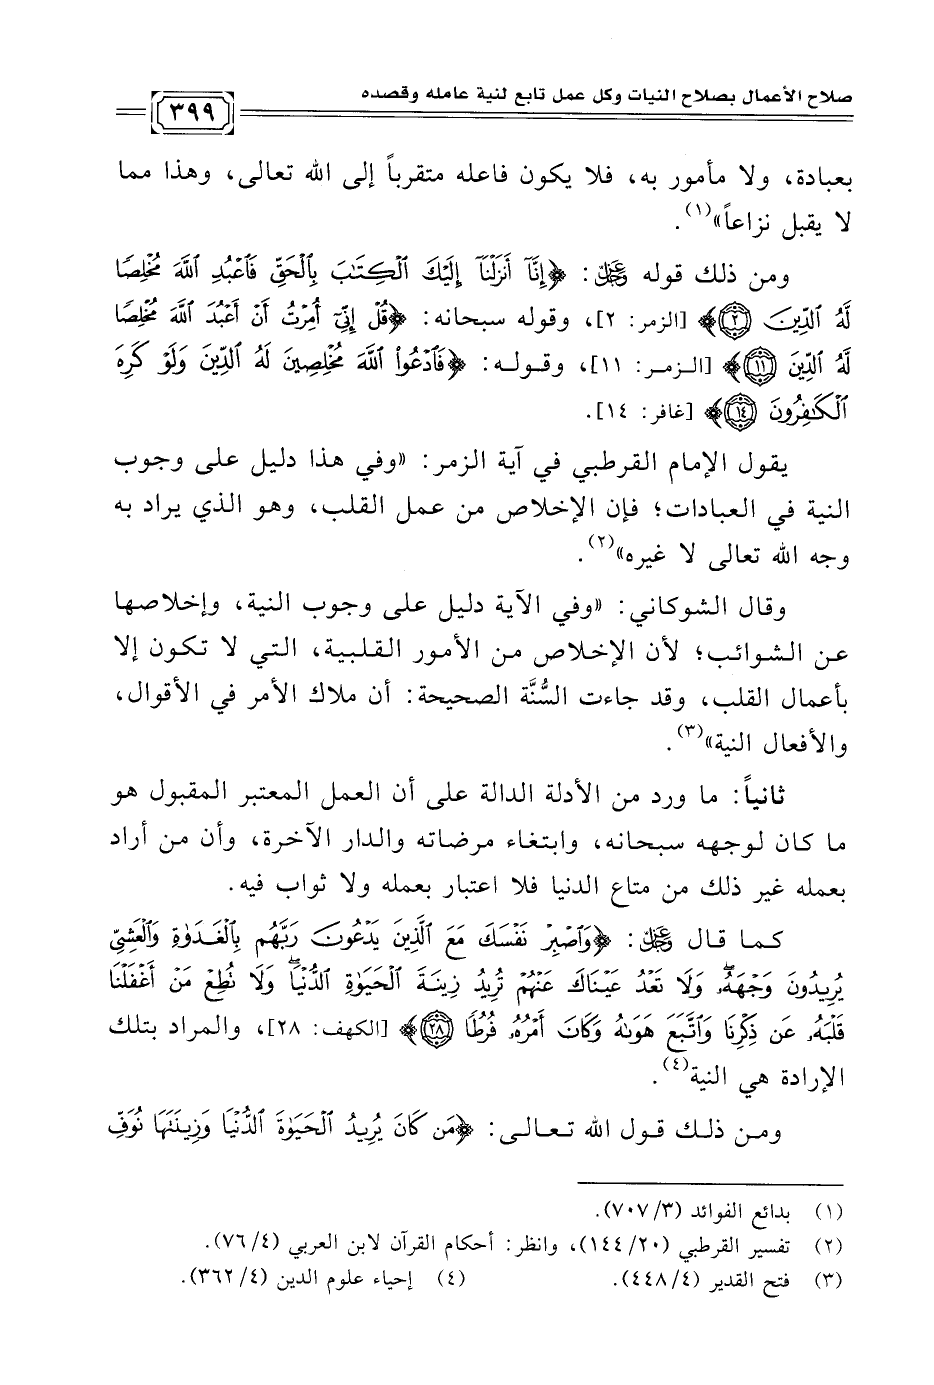 صلاح الأعمال بصلاح النيات وكل عمل تابع لنية عامله وقصده
٣٩٩
بعبادة، ولا مأمور به، فلا يكون فاعله متقرباً إلى الله تعالى، وهذا مما
لا يقبل نزاعاً»(١).
ومن ذلك قوله ﷿: ﴿إِنَّآ أَنزَلْنَآ إِلَيْكَ ٱلْكِتَٰبَ بِٱلْحَقِّ فَٱعْبُدِ ٱللَّهَ مُخْلِصًا
لَّهُ ٱلدِّينَ ﴿٢﴾﴾ [الزمر: ٢]، وقوله سبحانه: ﴿قُلْ إِنِّىٓ أُمِرْتُ أَنْ أَعْبُدَ ٱللَّهَ مُخْلِصًا
لَّهُ ٱلدِّينَ ﴿١١﴾﴾ [الزمر: ١١]، وقوله: ﴿فَٱدْعُوا۟ ٱللَّهَ مُخْلِصِينَ لَهُ ٱلدِّينَ وَلَوْ كَرِهَ
ٱلْكَٰفِرُونَ ﴿١٤﴾﴾ [غافر: ١٤].
يقول الإمام القرطبي في آية الزمر: «وفي هذا دليل على وجوب
النية في العبادات؛ فإن الإخلاص من عمل القلب، وهو الذي يراد به
وجه الله تعالى لا غيره»(٢).
وقال الشوكاني: «وفي الآية دليل على وجوب النية، وإخلاصها
عن الشوائب؛ لأن الإخلاص من الأمور القلبية، التي لا تكون إلا
بأعمال القلب، وقد جاءت السُّنَّة الصحيحة: أن ملاك الأمر في الأقوال،
والأفعال النية»(٣).
ثانياً: ما ورد من الأدلة الدالة على أن العمل المعتبر المقبول هو
ما كان لوجهه سبحانه، وابتغاء مرضاته والدار الآخرة، وأن من أراد
بعمله غير ذلك من متاع الدنيا فلا اعتبار بعمله ولا ثواب فيه.
كما قال ﷿: ﴿وَٱصْبِرْ نَفْسَكَ مَعَ ٱلَّذِينَ يَدْعُونَ رَبَّهُم بِٱلْغَدَوٰةِ وَٱلْعَشِىِّ
يُرِيدُونَ وَجْهَهُۥ ۖ وَلَا تَعْدُ عَيْنَاكَ عَنْهُمْ تُرِيدُ زِينَةَ ٱلْحَيَوٰةِ ٱلدُّنْيَا ۖ وَلَا تُطِعْ مَنْ أَغْفَلْنَا
قَلْبَهُۥ عَن ذِكْرِنَا وَٱتَّبَعَ هَوَىٰهُ وَكَانَ أَمْرُهُۥ فُرُطًا ﴿٢٨﴾﴾ [الكهف: ٢٨]، والمراد بتلك
الإرادة هي النية(٤).
ومن ذلك قول الله تعالى: ﴿مَن كَانَ يُرِيدُ ٱلْحَيَوٰةَ ٱلدُّنْيَا وَزِينَتَهَا نُوَفِّ
(١) بدائع الفوائد (٧٠٧/٣).
(٢) تفسير القرطبي (١٤٤/٢٠)، وانظر: أحكام القرآن لابن العربي (٧٦/٤).
(٣) فتح القدير (٤٤٨/٤). (٤) إحياء علوم الدين (٣٦٢/٤).